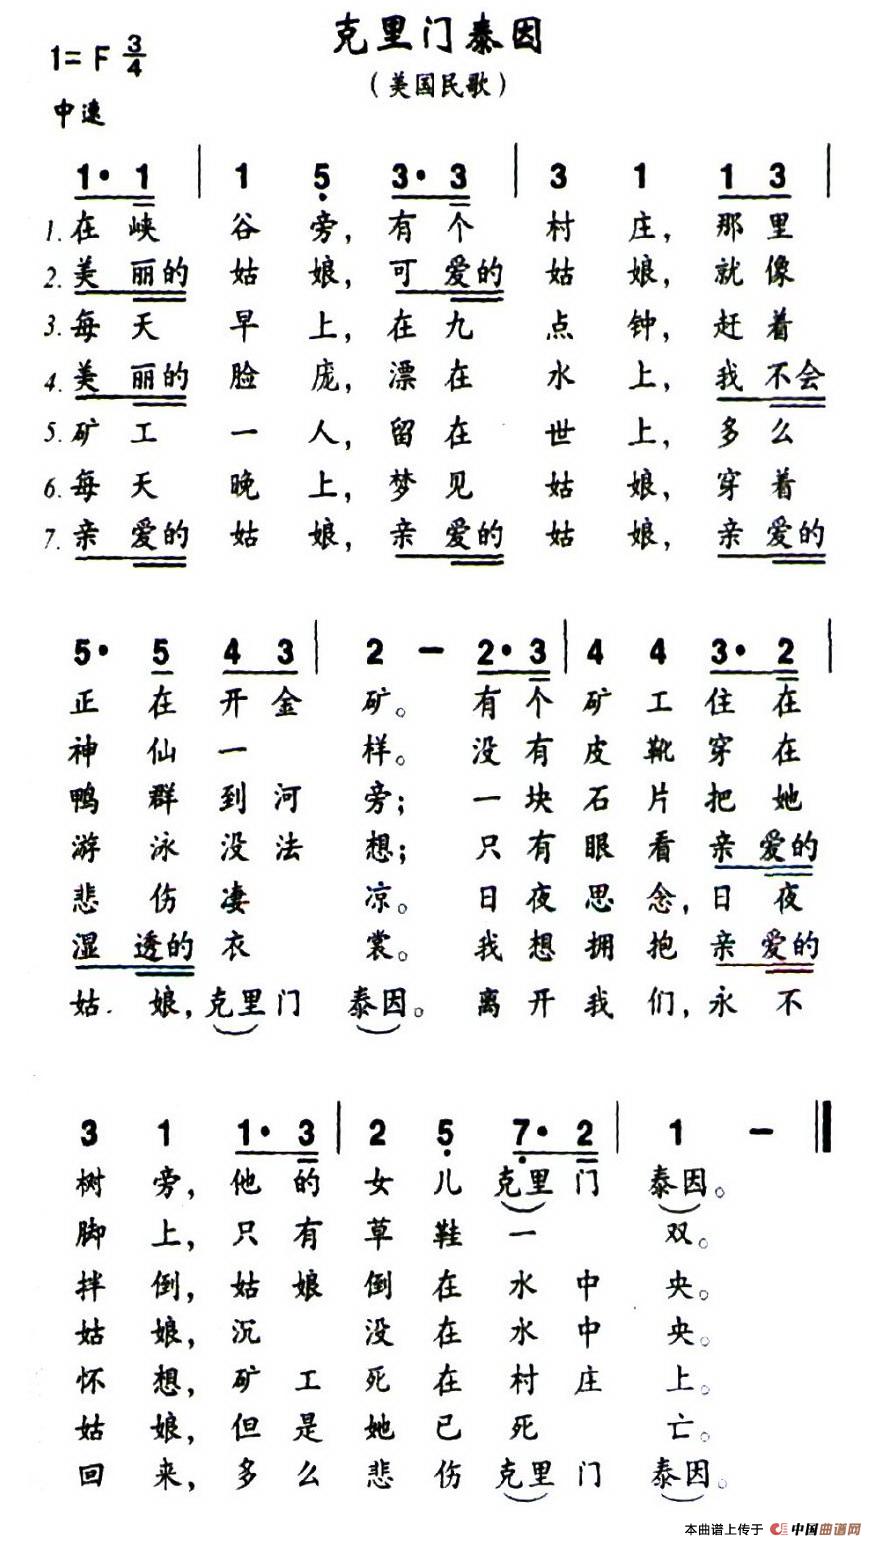 克里门泰因
1=F 3/4
（美国民歌）
中速
1· 1 | 1 5 3· 3 | 3 1 1 3 |
1. 在峡谷旁，有个村庄，那里
2. 美丽的姑娘，可爱的姑娘，就像
3. 每天早上，在九点钟，赶着
4. 美丽的脸庞，漂在水上，我不会
5. 矿工一人，留在世上，多么
6. 每天晚上，梦见姑娘，穿着
7. 亲爱的姑娘，亲爱的姑娘，亲爱的
5· 5 4 3 | 2 － 2· 3 | 4 4 3· 2 |
正在开金矿。有个矿工住在
神仙一样。没有皮靴穿在
鸭群到河旁；一块石片把她
游泳没法想；只有眼看亲爱的
悲伤凄凉。日夜思念，日夜
湿透的衣裳。我想拥抱亲爱的
姑娘，克里门泰因。离开我们，永不
3 1 1· 3 | 2 5 7· 2 | 1 － ‖
树旁，他的女儿克里门泰因。
脚上，只有草鞋一双。
拌倒，姑娘倒在水中央。
姑娘，沉没在水中央。
怀想，矿工死在村庄上。
姑娘，但是她已死亡。
回来，多么悲伤克里门泰因。
本曲谱上传于 中国曲谱网